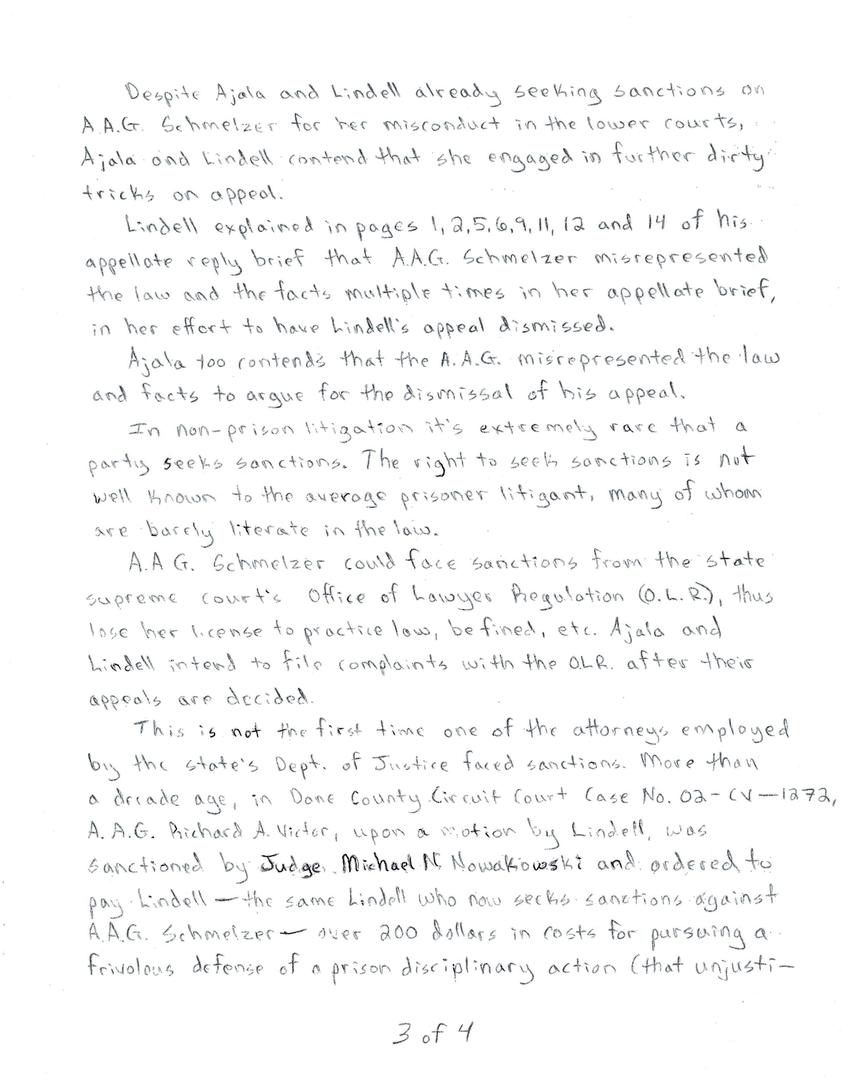 Despite Ajala and Lindell already seeking sanctions on
A.A.G. Schmelzer for her misconduct in the lower courts,
Ajala and Lindell contend that she engaged in further dirty
tricks on appeal.
Lindell explained in pages 1, 2, 5, 6, 9, 11, 12 and 14 of his
appellate reply brief that A.A.G. Schmelzer misrepresented
the law and the facts multiple times in her appellate brief,
in her effort to have Lindell's appeal dismissed.
Ajala too contends that the A.A.G. misrepresented the law
and facts to argue for the dismissal of his appeal.
In non-prison litigation it's extremely rare that a
party seeks sanctions. The right to seek sanctions is not
well known to the average prisoner litigant, many of whom
are barely literate in the law.
A.A G. Schmelzer could face sanctions from the state
supreme court's Office of Lawyer Regulation (O.L.R.), thus
lose her license to practice law, be fined, etc. Ajala and
Lindell intend to file complaints with the O.L.R. after their
appeals are decided.
This is not the first time one of the attorneys employed
by the state's Dept. of Justice faced sanctions. More than
a decade age, in Dane County Circuit Court Case No. 02-CV-1272,
A. A.G. Richard A. Victor, upon a motion by Lindell, was
sanctioned by Judge Michael N. Nowakowski and ordered to
pay Lindell — the same Lindell who now seeks sanctions against
A.A.G. Schmelzer — over 200 dollars in costs for pursuing a
frivolous defense of a prison disciplinary action (that unjusti-
3 of 4